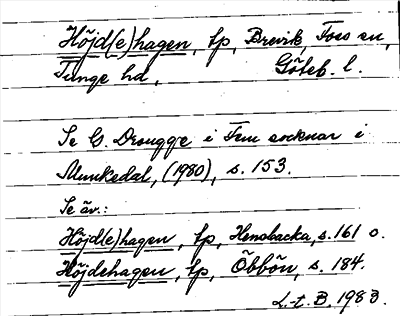 Höjd(e)hagen, tp, Brevik, Foss sn,
Tunge hd, Göteb. l.
Se G. Drougge i Fem socknar i
Munkedal, (1980), s. 153.
Se äv.:
Höjd(e)hagen, tp, Hensbacka, s. 161 o.
Höjdehagen, tp, Öbbön, s. 184.
L-t. B. 1983.